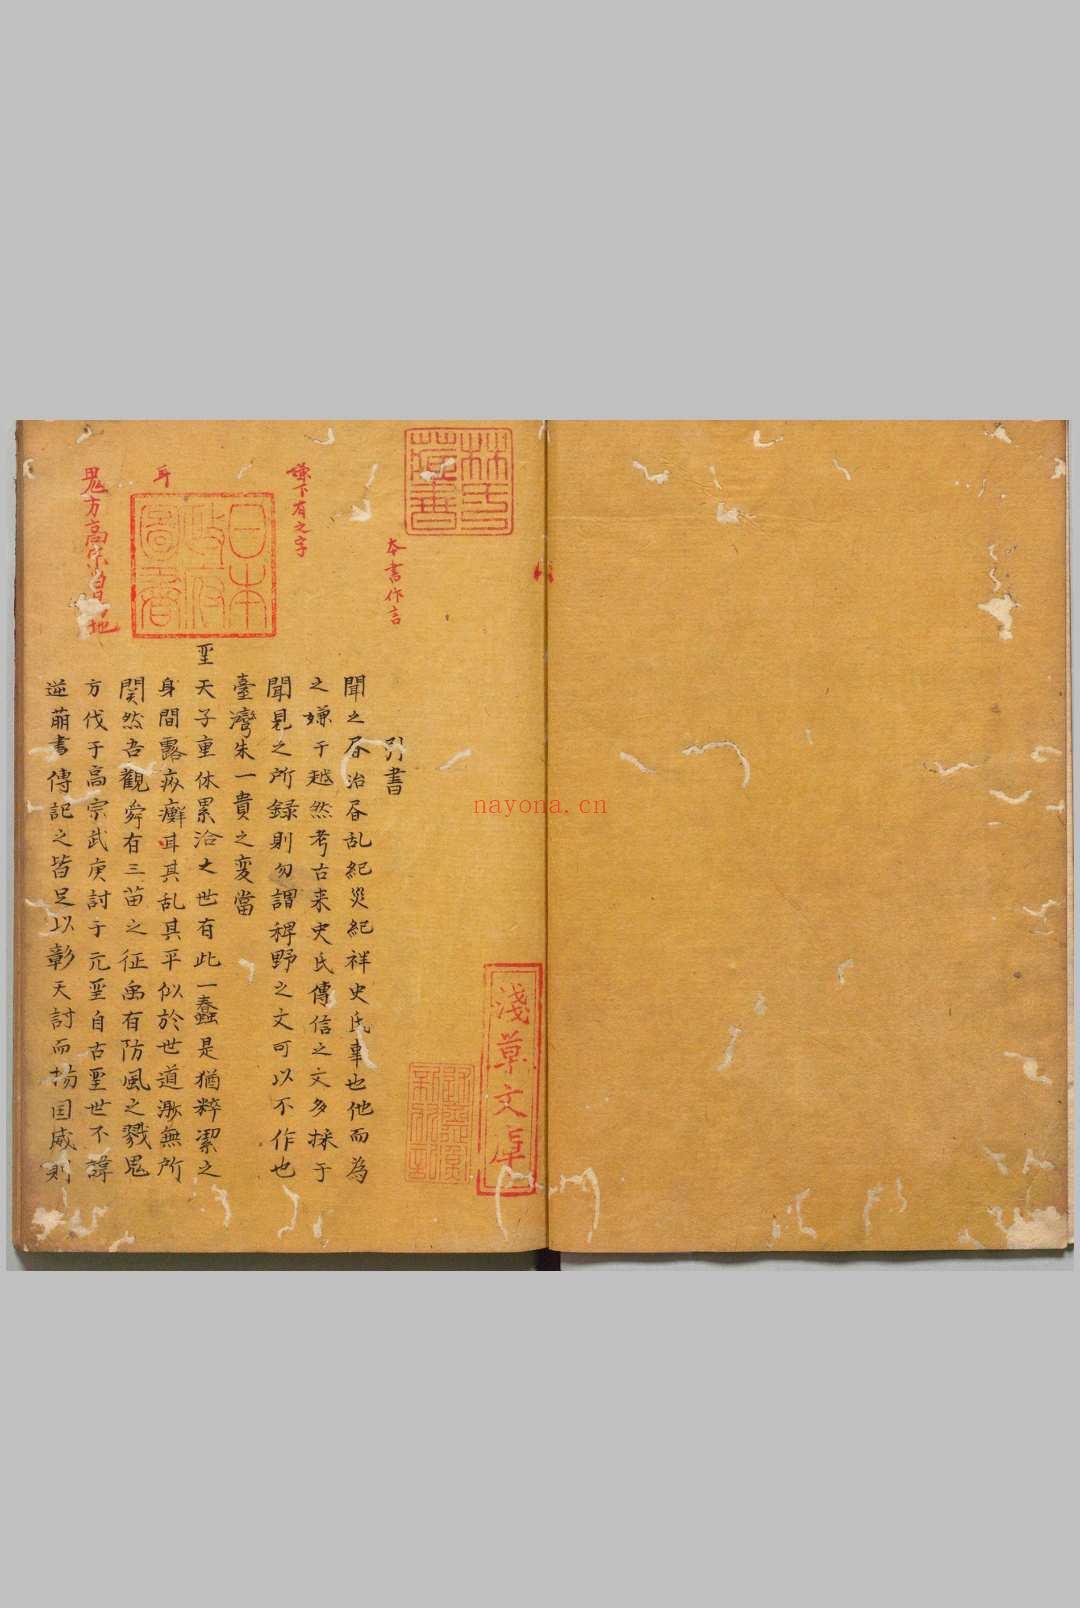 淺草文庫
林氏
藏書
本書作言
引書
聞之屠治屠乱紀災紀祥史氏事也他而為
嫌下有之字
之嫌于越然考古来史氏傳信之文多採于
聞見之所録則勿謂稗野之文可以不作也
日本
政府
圖書
臺灣朱一貴之変當
聖天子重休累洽之世有此一蠢是猶粹潔之
耳
身間露疥癬耳其乱其平似於世道渺無所
関然吾觀舜有三苗之征禹有防風之戮鬼
鬼方高宗
地
方伐于高宗武庚討于元聖自古聖世不諱
逆萠書傳記之皆足以彰天討而揚国威則
nayona.cn